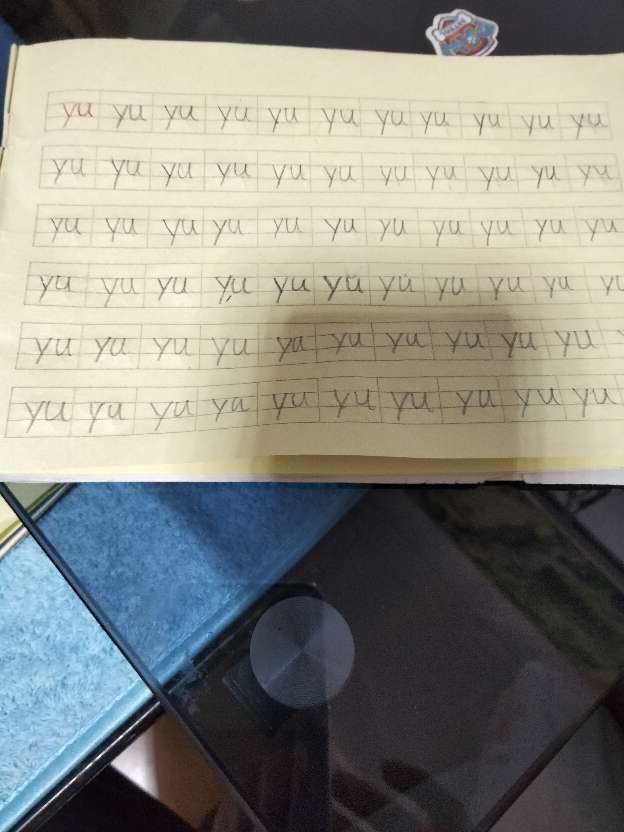 yu yu yu yu yu yu yu yu yu yu yu
yu yu yu yu yu yu yu yu yu yu yu
yu yu yu yu yu yu yu yu yu yu yu
yu yu yu yu yu yu yu yu yu yu
yu ya yu yu ya yu yu yu yu yu
yu ya yu ya yu yu yu yu yu yu